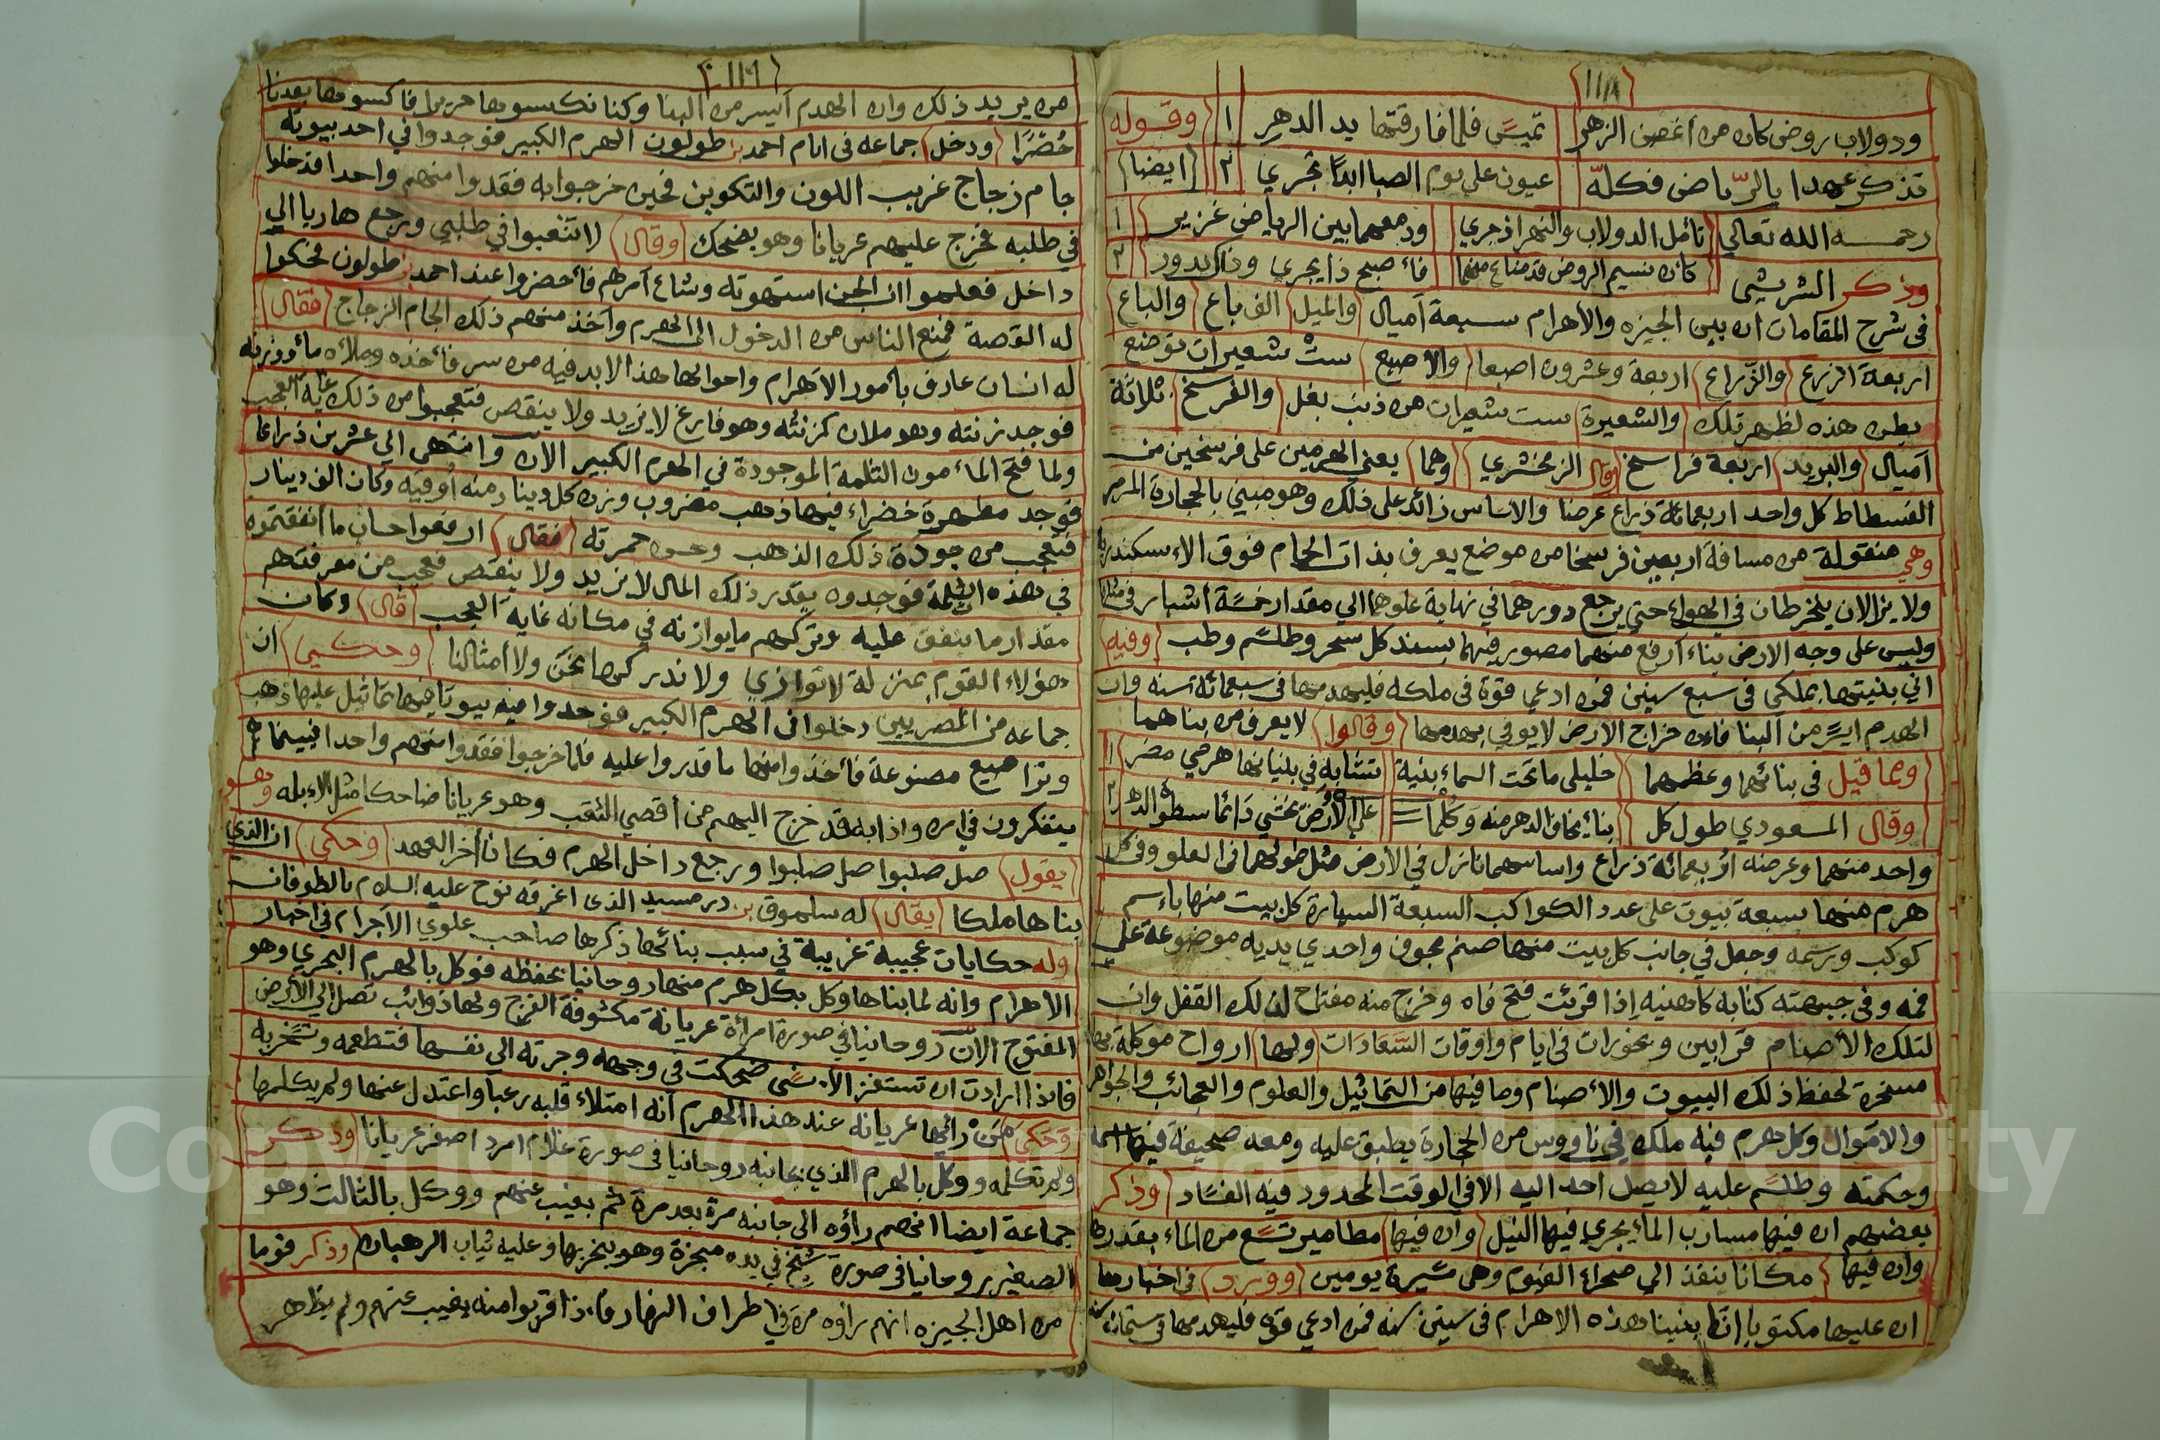 ١١٨
ودولاب روض كان من أغصن الزهر تميس فلما فارقتها يد الدهر ١ وقوله
تذكر عهدا بالرياض فكله عيون على يوم الصبا ابدا تجري ٢ ايضا
رحمه الله تعالي تأمل الدولاب والنهر اذ جري ودمعهما بين الرياض غزير ١
وذكر الشريشي كان نسيم الروض قد ضاع منهما فأصبح ذا يجري وذاك يدور ٢
في شرح المقامات ان بين الجيزه والأهرام سبعة آميال والميل الف باع والباع
اربعة اذرع والذراع اربعة وعشرون اصبعا والأصبع ست شعيرات توضع
بطن هذه لظهر تلك والشعيرة ست شعيرات من ذنب بغل والفرسخ ثلاثة
آميال والبريد اربعة فراسخ قال الزمخشري وهما يعني الهرمين على فرسخين من
الفسطاط كل واحد اربعمائة ذراع عرضا والاساس زائد على ذلك وهو مبني بالحجارة المرمر
وهي منقولة من مسافة اربعين فرسخا من موضع يعرف بذات الحمام فوق الأسكندرية
ولا يزالان ينخرطان في الهواء حتى يرجع دورهما في نهاية علوهما الي مقدار خمسة أشبار في مثلها
وليس على وجه الارض بناء آرفع منهما مصور فيهما بسند كل سحر وطلسم وطب وفيه
اني بنيتها بملكي في سبع سنين فمن ادعي قوة في ملكه فليهدمها في سبعمائة سنه وان
الهدم ايسر من البنا فان خراج الارض لا يوفي بهدمها وقالوا لا يعرف من بناهما
ومما قيل في بنائهما وعظمهما خليلى ما تحت السماء بنية تشابه في بنيانها هرمي مصر ١
وقال المسعودي طول كل بناء يخاف الدهر منه وكلما على الأرض يخشي دائما سطوة الدهر ٢
واحد منهما وعرضه اربعمائة ذراع واساسهما نازل في الأرض مثل طولهما في العلو وفي كل
هرم منهما سبعة بيوت على عدد الكواكب السبعة السيارة كل بيت منها باسم
كوكب ورسمه وجعل في جانب كل بيت منها صنم مجوف واحدي يديه موضوعة على
فمه وفي جبهته كتابه كاهنيه إذا قرئت فتح فاه وخرج منه مفتاح لذلك القفل وان
لتلك الأصنام قرابين وبخورات في ايام واوقات السعادات ولها ارواح موكلة بها
مسخرة لحفظ ذلك البيوت والأصنام وما فيها من التماثيل والعلوم والعجائب والجواهر
والاموال وكل هرم فيه ملك في ناووس من الحجارة يطبق عليه ومعه صحيفة فيها اسمه
وحكمته وطلسم عليه لا يصل احد اليه الا في الوقت المحدور فيه الفساد وذكر
بعضهم ان فيها مسارب الماء يجري فيها النيل وان فيها مطامير تسع من الماء بقدرها
وان فيها مكانا ينفذ الي صحراء الفيوم وهى مسيرة يومين وورد في اخبارها
ان عليها مكتوبا انا بنينا هذه الاهرام في ستين سنه فمن ادعي قوة فليهدمها في ستمائة سنه
١١٩
من يريد ذلك وان الهدم ايسر من البنا وكنا نكسوها حريرا فاكسوها بعدنا
حُصُرًا ودخل جماعه في ايام احمد بن طولون الهرم الكبير فوجدوا في احد بيوته
جام زجاج غريب اللون والتكوين فحين خرجوا به فقدوا منهم واحدا فدخلوا
في طلبه فخرج عليهم عريانا وهو يضحك وقال لا تتعبوا في طلبي ورجع هاربا الي
داخل فعلموا ان الجن استهوته وشاع آمرهم فأحضروا عند احمد بن طولون فحكوا
له القصة فمنع الناس من الدخول الى الهرم وآخذ منهم ذلك الجام الزجاج فقال
له انسان عارف بأمور الآهرام واحوالها هذا لا بد فيه من سر فأخذه وملأه ماء ووزنه
فوجد زنته وهو ملان كزنته وهو فارغ لا يزيد ولا ينقص فتعجبوا من ذلك غاية العجب
ولما فتح المأمون الثلمة الموجودة في الهرم الكبير الآن وانتهى الي عشرين ذراعا
فوجد مطهرة خضراء فيها ذهب مضروب وزن كل دينار منه أوقيه وكان الف دينار
فتعجب من جودة ذلك الذهب وحسن حمرته فقال ارفعوا حساب ما انفقتموه
في هذه الثلمة فوجدوه بقدر ذلك المال لا يزيد ولا ينقص فعجب من معرفتهم
مقدار ما ينفق عليه وتركهم ما يوازنه في مكانه غايه العجب قال وكان
هؤلاء القوم بمنزلة لا توازي ولا ندركها نحن ولا امثالنا وحكي ان
جماعه من المصريين دخلوا في الهرم الكبير فوجدوا فيه بيوتا فيها تماثيل عليها ذهب
وتراصيع مصنوعة فأخذوا منها ما قدروا عليه فلما خرجوا فقدوا منهم واحدا فبينما هم
يتفكرون في امره واذا به قد خرج اليهم من أقصي الثقب وهو عريانا ضاحكا مثل الابله وهو
يقول صل صلبوا صل صلبوا ورجع داخل الهرم فكان اخر العهد وحكي ان الذي
بناها ملكا يقال له سلموق بن درمسيد الذي اغرقه نوح عليه السلام بالطوفان
وله حكايات عجيبة غريبة في سبب بنائها ذكرها صاحب علوي الآجرام في اخبار
الاهرام وانه لما بناها وكل بكل هرم منها روحانيا يحفظه فوكل بالهرم البحري وهو
المفتوح الآن روحانيا في صورة امرأة عريانة مكشوفة الفرج ولها ذوائب تصل الي الأرض
فاذا ارادت ان تستفز الأنسي ضحكت في وجهه وجرته الى نفسها فتطعمه وتسخر به
وحكي من رائها عريانه عند هذا الهرم انه امتلاء قلبه رعبا واعتدل عنها ولم يكلمها
ولم تكلمه ووكل بالهرم الذي بجانبه روحانيا في صورة غلام امرد اصفر عريانا وذكر
جماعة ايضا انهم رأوه الى جانبه مرة بعد مرة ثم يغيب عنهم ووكل بالثالث وهو
الصغير روحانيا في صورة شيخ في يده مبخرة وهو يبخر بها وعليه ثياب الرهبان وذكر قوما
من اهل الجيزه انهم رأوه مرة في اطراف النهار فاذا قربوا منه يغيب عنهم ولم يظهر
Copyright © King Saud University